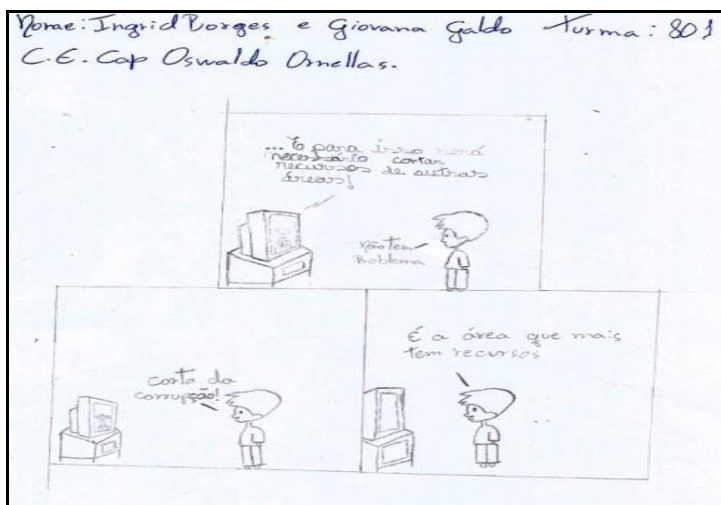 Nome: Ingrid Borges e Giovana Galdo Turma: 801
C.E. Cap Oswaldo Ornellas.
... E para isso será
necessário cortar
recursos de outras
áreas!
não tem
Problema
corta da
corrupção!
É a área que mais
tem recursos